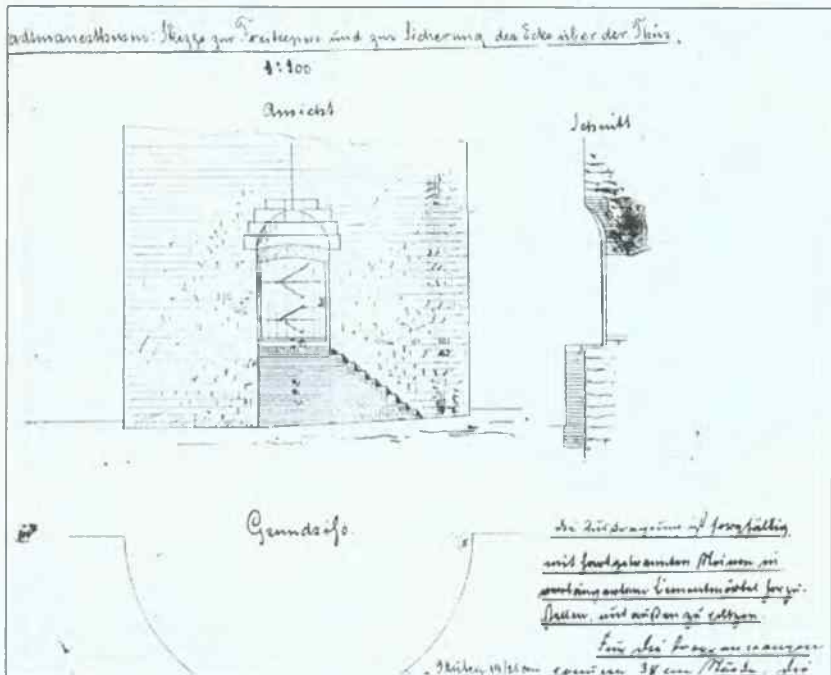 adtmauerthurm: Skizze zur Freitreppe und zur Sicherung der Ecke über der Thür.
1:100
Ansicht
Schnitt
Grundriß.
ist sorgfältig
mit hartgebrannten Steinen in
verlängertem Cementmörtel herzu-
stellen, und außen zu
Für die
38 cm Stärke, die